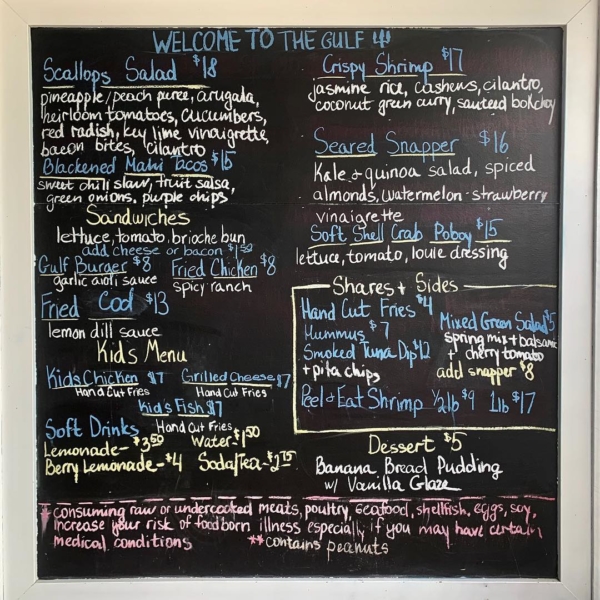 WELCOME TO THE GULF
Scallops Salad $18
pineapple/peach puree, arugala,
heirloom tomatoes, cucumbers,
red radish, key lime vinaigrette,
bacon bites, cilantro
Blackened Mahi Tacos $15
sweet chili slaw, fruit salsa,
green onions, purple chips
Sandwiches
lettuce, tomato, brioche bun
add cheese or bacon $1.50
Gulf Burger $8
garlic aioli sauce
Fried Chicken $8
spicy ranch
Fried Cod $13
lemon dill sauce
Kids Menu
Kids Chicken $7
Hand Cut Fries
Grilled Cheese $7
Hand Cut Fries
Kid's Fish $7
Hand Cut Fries
Soft Drinks
Lemonade - $3.50
Water - $1.50
Berry Lemonade - $4
Soda/Tea - $2.75
Crispy Shrimp $17
jasmine rice, cashews, cilantro,
coconut green curry, sauteed bokchoy
Seared Snapper $16
Kale + quinoa salad, spiced
almonds, watermelon-strawberry
vinaigrette
Soft Shell Crab Poboy $15
lettuce, tomato, louie dressing
Shares + Sides
Hand Cut Fries $4
Hummus $7
Smoked Tuna Dip $12
+ pita chips
Mixed Green Salad $5
spring mix + balsamic
+ cherry tomato
add snapper $8
Peel & Eat Shrimp 1/2lb $9 1lb $17
Dessert $5
Banana Bread Pudding
w/ Vanilla Glaze
* consuming raw or undercooked meats, poultry, seafood, shellfish, eggs, soy,
increase your risk of foodborn illness especially if you may have certain
medical conditions **contains peanuts